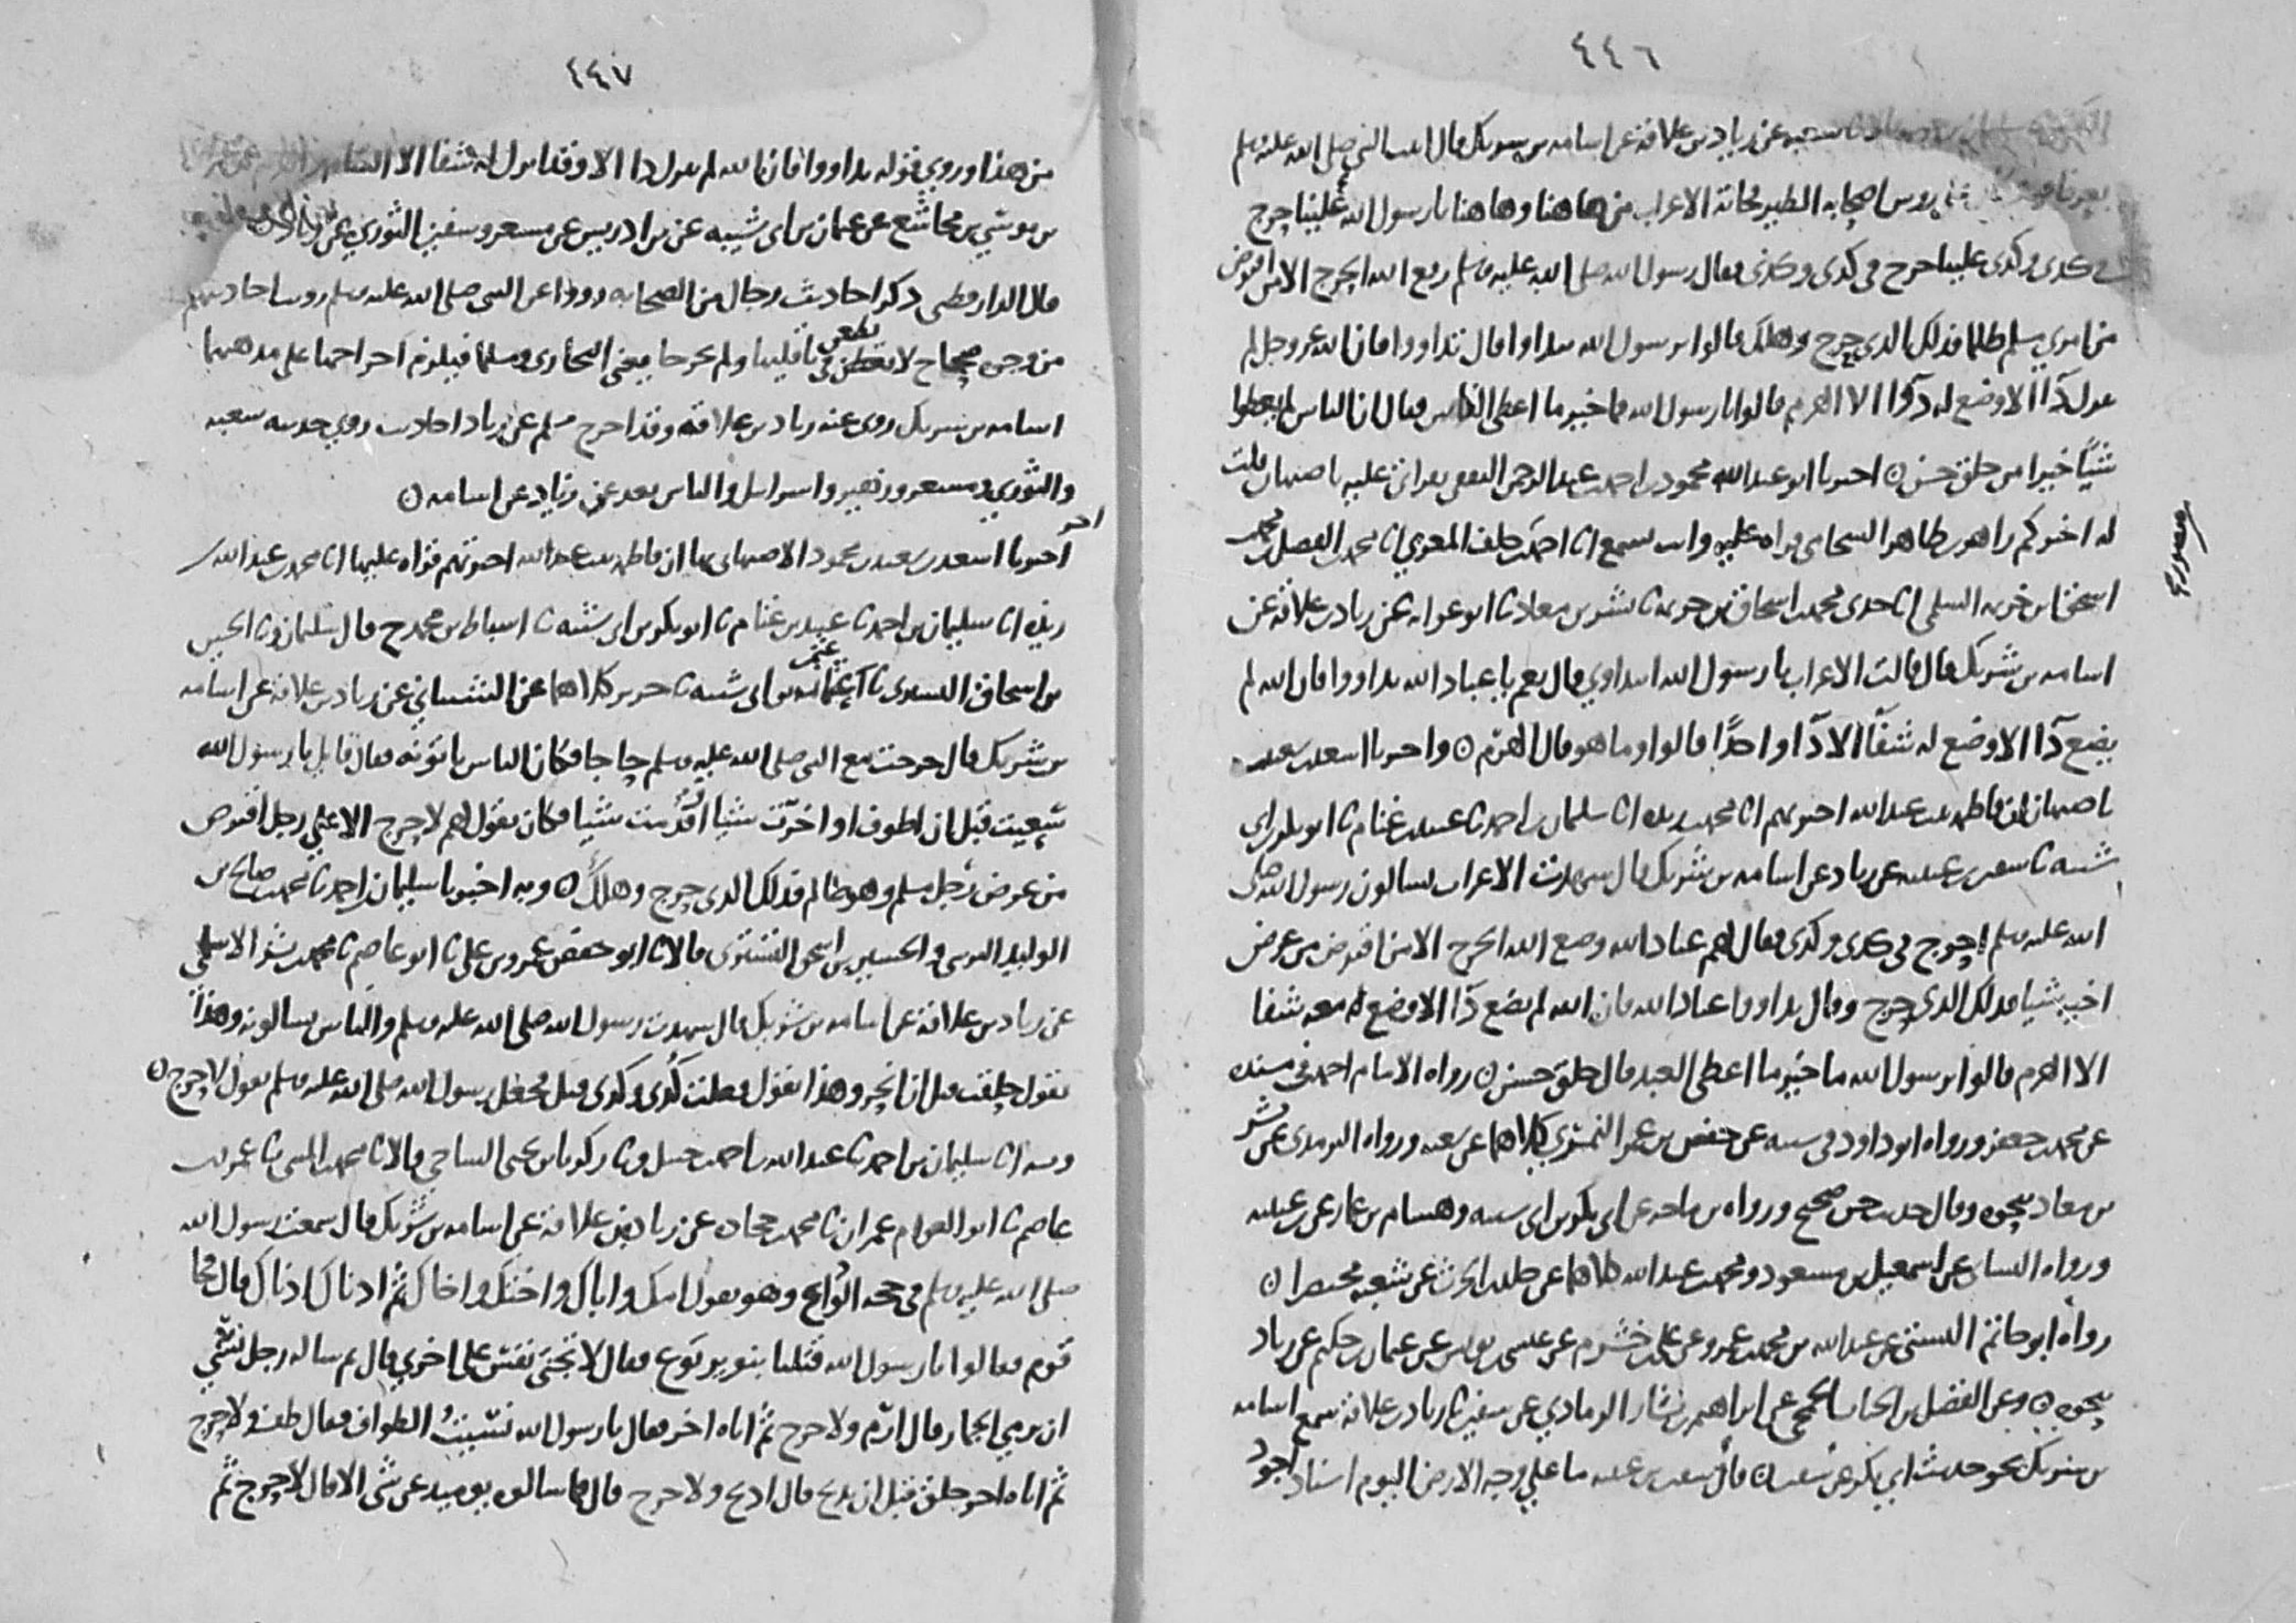 ٤٤٦
شعبه عن زياد بن علاقة عن اسامه بن شريك قال اتيت النبي صلى الله عليه وسلم
اصحابه الطير فجاته الاعراب من هاهنا وهاهنا يا رسول الله علينا حرج
في كدى وكدى علينا حرج في كدى وكذى فقال رسول الله صلى الله عليه وسلم رفع الله الحرج الا من اقترض
من امري مسلم ظلما فذلك الدي حرج وهلك قالوا يرسول الله نتداوا قال تداووا فان الله عز وجل لم
ينزل دآا الا وضع له دوآا الا الهرم قالوا يا رسول الله فما خير ما اعطى الناس فقال ان الناس لم يعطوا
شيًا خيرا من خلق حسن ٥ اخبرنا ابو عبد الله محمود بن احمد بن عبد الرحمن الثقفي بقراتي عليه باصبهان قلت
له اخبركم زاهر بن طاهر الشحامي قراه عليه وانت تسمع انا احمد بن خلف المغربي انا محمد بن الفضل بن محمد
اسحق بن خزيمه السلمي انا جدي محمد بن اسحاق بن خزيمه ثا بشر بن معاد ثا ابو عوانه عن زياد بن علاقه عن
اسامه بن شريك قال قالت الاعراب يا رسول الله انتداوي قال نعم يا عباد الله تداووا فان الله لم
يضع دآا الا وضع له شفآا الا دآا واحدًا قالوا وما هو قال الهرم ٥ واخبرنا اسعد بن سعيد
باصبهان ان فاطمه بنت عبد الله اخبرتهم انا محمد بن ريذه انا سليمان بن احمد ثا عبيد بن غنام ثا ابو بكر بن ابي
شيبه ثا سفين بن عيينه عن زياد عن اسامه بن شريك قال شهدت الاعراب يسالون رسول الله صلى
الله عليه وسلم احرج في كدى وكدى فقال لهم عباد الله وضع الله الحرج الا من اقترض من عرض
اخيه شيا فذلك الدي حرج وقال تداووا عباد الله فان الله لم يضع دآا الا وضع له معه شفا
الا الهرم قالوا يرسول الله ما خير ما اعطى العبد قال خلق حسن ٥ رواه الامام احمد في مسنده
عن محمد بن جعفر ورواه ابو داود في سننه عن حفص بن عمر النمري كلاهما عن شعبه ورواه الترمدى عن بشر
بن معاد بنحوه وقال حديث حسن صحيح ورواه بن ماجه عن ابي بكر بن ابي شيبه وهشام بن عمار عن بن عيينه
ورواه النسائي عن اسمعيل بن مسعود ومحمد بن عبد الله كلاهما عن خالد بن الحرث عن شعبه مختصرا ٥
رواه ابو حاتم البستي عن عبد الله بن محمد بن عمرو عن علي بن خشرم عن عيسى بن يونس عن عثمان بن حكيم عن زياد
بنحوه ٥ وعن الفضل بن الحباب الجمحي عن ابراهيم بن بشار الرمادي عن سفين ثا زياد بن علاقه سمع اسامه
بن شريك نحو حديث ابي بكر عن سفين ٥ قال سفين بن عيينه ما علي وجه الارض اليوم اسناد اجود
٤٤٧
من هذا وروي قوله تداووا فان الله لم ينزل دا الا وقد انزل له شفا الا السام
بن موسي بن مجاشع عن عثمان بن ابي شيبه عن بن ادريس عن مسعر وسفين الثوري عن زياد
قال الدارقطني دكر احاديث رجال من الصحابه رووا عن النبي صلى الله عليه وسلم رويت احاديثهم
من وجوه صحاح لا مطعن في ناقليها ولم يخرجا يعني البخاري ومسلما فيلزم اخراجها على مدهبهما
اسامه بن شريك روى عنه زياد بن علاقه وقد اخرج مسلم عن زياد احاديث روي حديثه شعبه
والثوري ومسعر وزهير واسرايل والناس بعد عن زياد عن اسامه ٥
اخر
اخبرنا اسعد بن سعيد بن محمود الاصبهاني بها ان فاطمه بنت عبد الله اخبرتهم قراه عليها انا محمد بن عبد الله بن
ريذه انا سليمان بن احمد ثا عبيد بن غنام ثا ابو بكر بن ابي شيبه ثا اسباط بن محمد ح قال سليمان وثا الحسين
بن اسحاق التستري ثا عثمان بن ابي شيبه ثا جرير كلاهما عن الشيباني عن زياد بن علاقه عن اسامه
بن شريك قال خرجت مع النبي صلى الله عليه وسلم حاجا فكان الناس ياتونه فقال قايل يا رسول الله
سعيت قبل ان اطوف او اخرت شيا او قدمت شيا فكان يقول لهم لا حرج الا علي رجل اقترض
من عرض رجل مسلم وهو ظالم فذلك الدي حرج وهلك ٥ وبه اخبرنا سليمان بن احمد ثا محمد بن صالح بن
الوليد النرسي والحسين بن اسحق التستري قالا ثا ابو حفص عمرو بن علي ثا ابو عاصم ثا محمد بن بشر الاسلمي
عن زياد بن علاقه عن اسامه بن شريك قال شهدت رسول الله صلى الله عليه وسلم والناس يسالونه وهذا
يقول حلقت قبل ان انحر وهذا يقول فعلت كدى وكدى قبل فجعل رسول الله صلى الله عليه وسلم يقول لا حرج ٥
وبه انا سليمان بن احمد ثا عبد الله بن احمد بن حنبل وثا زكريا بن يحيى الساجي قالا ثا محمد بن المثنى ثا عمرو بن
عاصم ثا ابو العوام عمران ثا محمد بن جحاده عن زياد بن علاقه عن اسامه بن شريك قال سمعت رسول الله
صلى الله عليه وسلم في حجه الوداع وهو يقول امك واباك واختك واخاك ثم ادناك ادناك قال فجا
قوم فقالوا يا رسول الله قتلنا بنو يربوع فقال لا تجني نفس على اخري قال ثم ساله رجل نسي
ان يرمي الجمار قال ارم ولا حرج ثم اتاه اخر فقال يا رسول الله نسيت الطواف فقال طف ولا حرج
ثم اتاه اخر حلق قبل ان يدبح قال ادبح ولا حرج قال فما سالوه يوميد عن شي الا قال لا حرج ثم